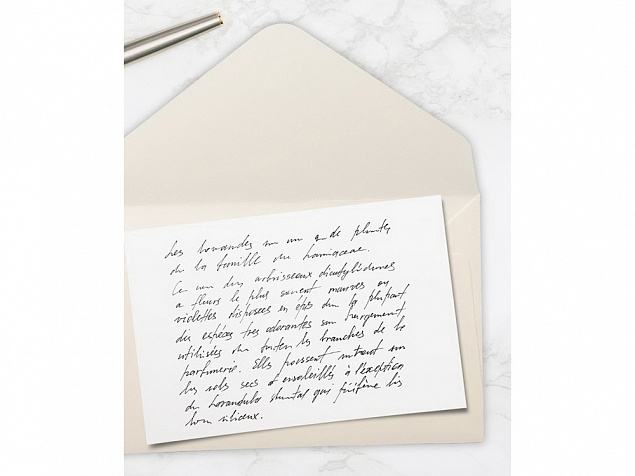 Les lavandes sont un genre de plantes
de la famille des Lamiaceae.
Ce sont des arbrisseaux dicotylédones
à fleurs le plus souvent mauves ou
violettes disposées en épis dont la plupart
des espèces très odorantes sont largement
utilisées dans toutes les branches de la
parfumerie. Elles poussent surtout sur
les sols secs et ensoleillés à l'exception
du Lavandula qui préfère les
sols siliceux.